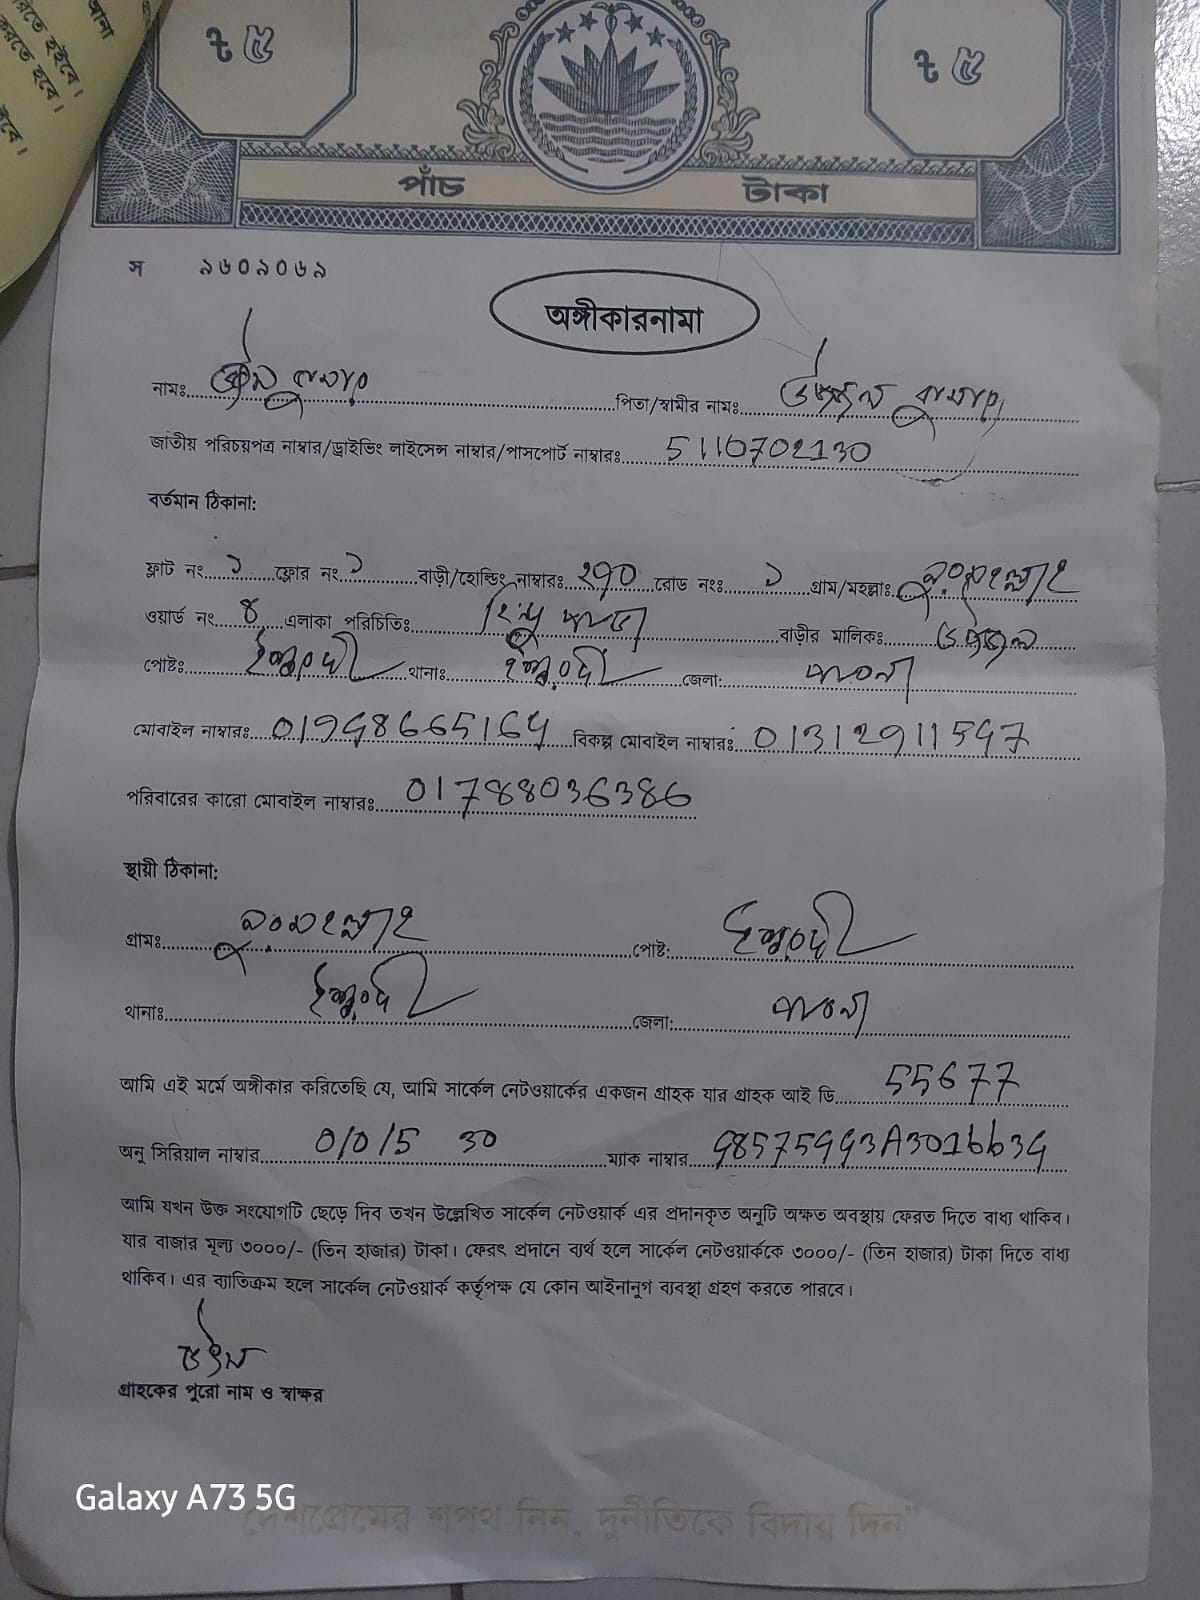 রিতে হইবে।
করতে হবে।
ইবে।
আনা
৳ ৫
৳ ৫
পাঁচ টাকা
স ৯৬০৯০৬৯
অঙ্গীকারনামা
নামঃ উত্তম কুমার পিতা/স্বামীর নামঃ উজ্জ্বল কুমার
জাতীয় পরিচয়পত্র নাম্বার/ড্রাইভিং লাইসেন্স নাম্বার/পাসপোর্ট নাম্বারঃ 5110702130
বর্তমান ঠিকানা:
ফ্লাট নং ১ ফ্লোর নং ১ বাড়ী/হোল্ডিং নাম্বারঃ ২৭০ রোড নংঃ ১ গ্রাম/মহল্লাঃ
ওয়ার্ড নং ৪ এলাকা পরিচিতিঃ হিন্দু পাড়া বাড়ীর মালিকঃ উজ্জ্বল
পোষ্টঃ ঈশ্বরদী থানাঃ ঈশ্বরদী জেলা: পাবনা
মোবাইল নাম্বারঃ 01798665164 বিকল্প মোবাইল নাম্বারঃ 01312911597
পরিবারের কারো মোবাইল নাম্বারঃ 01788036386
স্থায়ী ঠিকানা:
গ্রামঃ পোষ্ট: ঈশ্বরদী
থানাঃ ঈশ্বরদী জেলা: পাবনা
আমি এই মর্মে অঙ্গীকার করিতেছি যে, আমি সার্কেল নেটওয়ার্কের একজন গ্রাহক যার গ্রাহক আই ডি 55677
অনু সিরিয়াল নাম্বার 0/0/5 30 ম্যাক নাম্বার 98575993A3016b39
আমি যখন উক্ত সংযোগটি ছেড়ে দিব তখন উল্লেখিত সার্কেল নেটওয়ার্ক এর প্রদানকৃত অনুটি অক্ষত অবস্থায় ফেরত দিতে বাধ্য থাকিব।
যার বাজার মূল্য ৩০০০/- (তিন হাজার) টাকা। ফেরৎ প্রদানে ব্যর্থ হলে সার্কেল নেটওয়ার্ককে ৩০০০/- (তিন হাজার) টাকা দিতে বাধ্য
থাকিব। এর ব্যাতিক্রম হলে সার্কেল নেটওয়ার্ক কর্তৃপক্ষ যে কোন আইনানুগ ব্যবস্থা গ্রহণ করতে পারবে।
উত্তম
গ্রাহকের পুরো নাম ও স্বাক্ষর
Galaxy A73 5G
"দেশপ্রেমের শপথ নিন, দুর্নীতিকে বিদায় দিন"